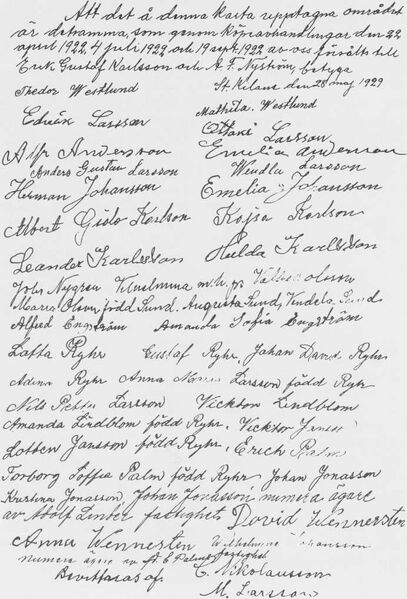 Att det å denna karta upptagna området
är detsamma, som genom köpeavhandlingar den 22
april 1922, 4 juli 1922 och 19 sept. 1922 av oss försålts till
Erik Gustaf Karlsson och A. F. Nyström, betyga
St. Kilans den 28 maj 1929
Thedor Westlund Mathilda Westlund
Edvin Larsson Ottani Larsson
Alfr Anderson Emelia Anderson
Anders Gustav Larsson Wendla Larsson
Herman Johansson Emelia Johansson
Albert Gido Karlson Kajsa Karlson
Leander Karlsson Hulda Karlsson
Johs Nygren Vilhelmina Olsson
Maria Olsson född Lund. Augusta Lund, Vendela Lund
Alfred Engström Amanda Sofia Engström
Lotta Ryhr Gustaf Ryhr, Johan David Ryhr
Adina Ryhr Anna Maria Larsson född Ryhr
Nils Petter Larsson Vicktor Lindblom
Amanda Lindblom född Ryhr, Vicktor
Lotten Jansson född Ryhr, Erich Palm
Torborg Soffia Palm född Ryhr Johan Jonasson
Kristina Jonasson, Johan Jonasson numera ägare
av Adolf fastighet David Wennersten
Anna Wennersten Wilhelmina Johansson
numera ägare av Palms fastighet
Bevittnas af: C. Nikolausson
M. Larsson